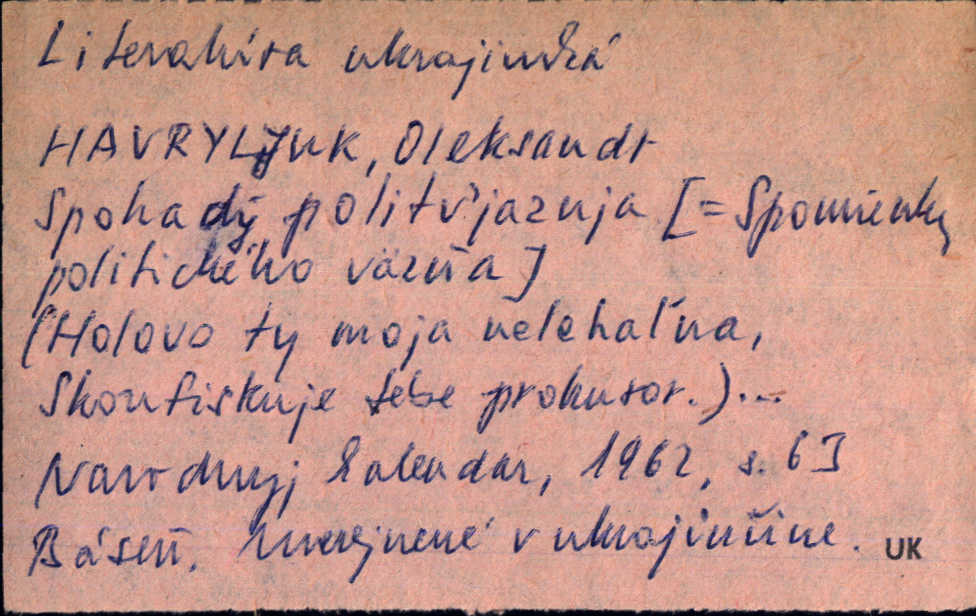 Literatúra ukrajinská
HAVRYLJUK, Oleksandr
Spohady politv'jaznja [= Spomienky
politického väzňa]
(Holovo ty moja nelehaľna,
Skonfiskuje tebe prokuror.)...
Narodnyj kalendar, 1962, s. 63
Báseň. Uverejnené v ukrajinčine.
UK